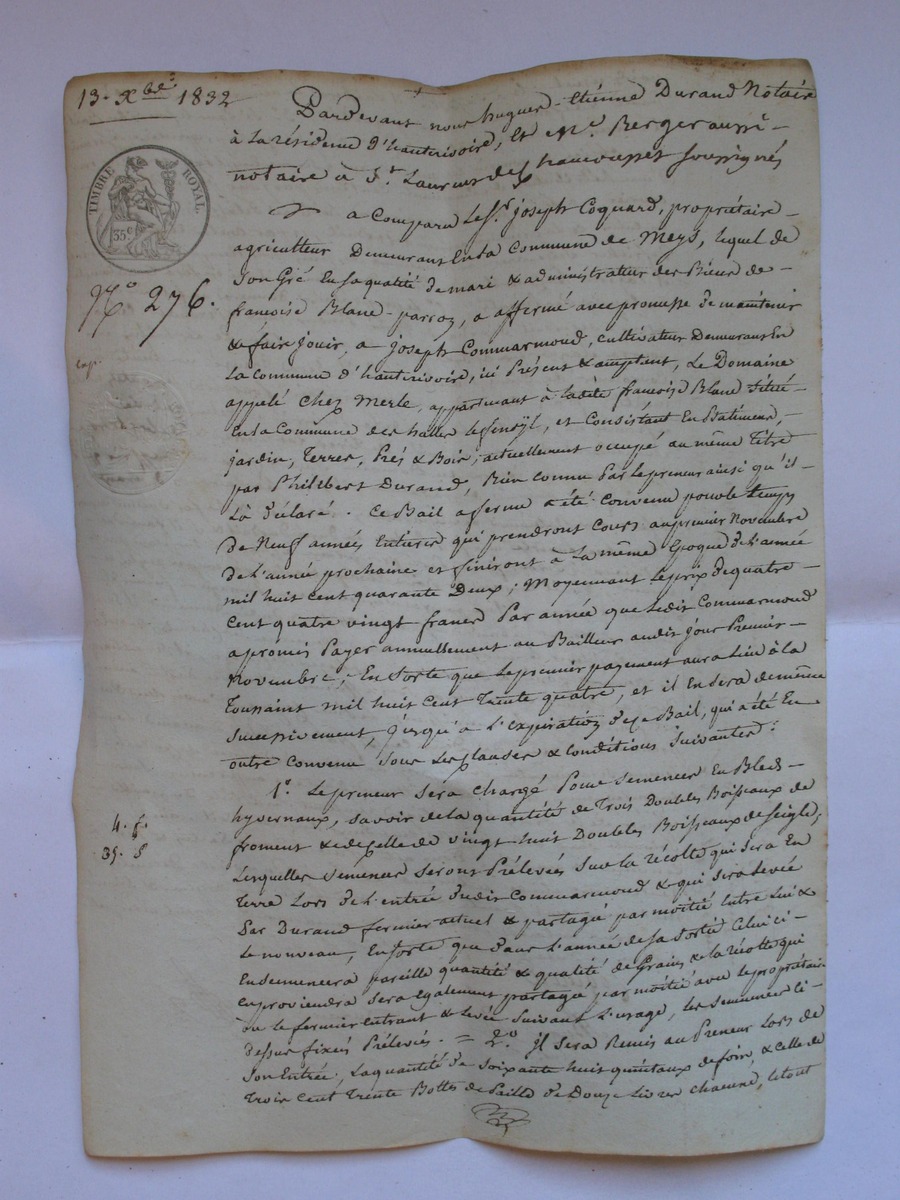 13. Xbre 1832
Pardevant nous hugues-Etiénne Durand Notaire
à La résidence d'hauterivoire, Et Me. Berger aussi-
notaire à St. Laurent de Chamousset soussignés
TIMBRE ROYAL
35c
a Comparu Le Sr. Joseph Coquard, propriétaire-
agriculteur Demeurant En la Commune de Meys, lequel de
son Gré En sa qualité de mari & administrateur des Biens de-
No 276.
françoise Blanc-parroz, a affermé avec promesse de maintenir
& fair Jouir, a Joseph Commarmond, cultivateur Demeurant En
La Commune d'hauterivoire, ici Présent & acceptant, Le Domaine
appelé Chez Merle, appartenant à ladite françoise Blanc situé-
En la Commune des halles le fenoÿl, et Consistant En Batiments,-
jardin, Terres, Prés & Bois; actuellement occupé au même Titre
par Philibert Durand, Bien connu Par Le preneur ainsi qu'il-
La déclaré. Ce Bail a ferme a été Convenu pour le temps
De Neuf années Entieres qui prendront Cours au premier Novembre
de L'année prochaine et finiront à La même Epoque de L'année
mil huit cent quarante Deux; Moyennant Le prix de quatre-
Cent quatre vingt francs Par année que Ledit Commarmond
a promis Payer annuellement au Bailleur audit jour Premier-
Novembre; En Sorte que Le premier payement aura Lieu à La
Toussaint mil huit Cent Trente quatre, et il En Sera de même
Successivement, jusqu'à L'Expiration de ce Bail, qui a été En
outre Convenu Sous Les Clauses & Conditions Suivantes:
1o. Le preneur Sera Chargé Pour Semences En Bleds-
hyvernaux, Savoir de La quantité de Trois Doubles Boisseaux de
4. f.
froment & de Celle de vingt huit Doubles Boisseaux de Seigle;
35.
Lesquelles Semences Seront Prélevées Sur la récolte qui Sera En
Terre Lors de L'entrée dudit Commarmond & qui Sera Levée
Par Durand fermier actuel & partagée par moitié Entre Lui &
Le nouveau, En Sorte que dans L'année de Sa Sortie Celui ci-
Ensemencera pareille quantité & qualité de Grains & la récolte qui
En proviendra Sera Également partagée par moitié avec le propriétaire
ou le fermier Entrant & Levée Suivant L'usage, les Semences ci-
dessus fixées Prélevées. = 2o. Il Sera Remis au Preneur Lors de
Son Entrée, La quantité de Soixante huit quintaux de foin, & Celle de
Trois Cent Trente Bottes de Paille de Douze Livres chacune, Le tout